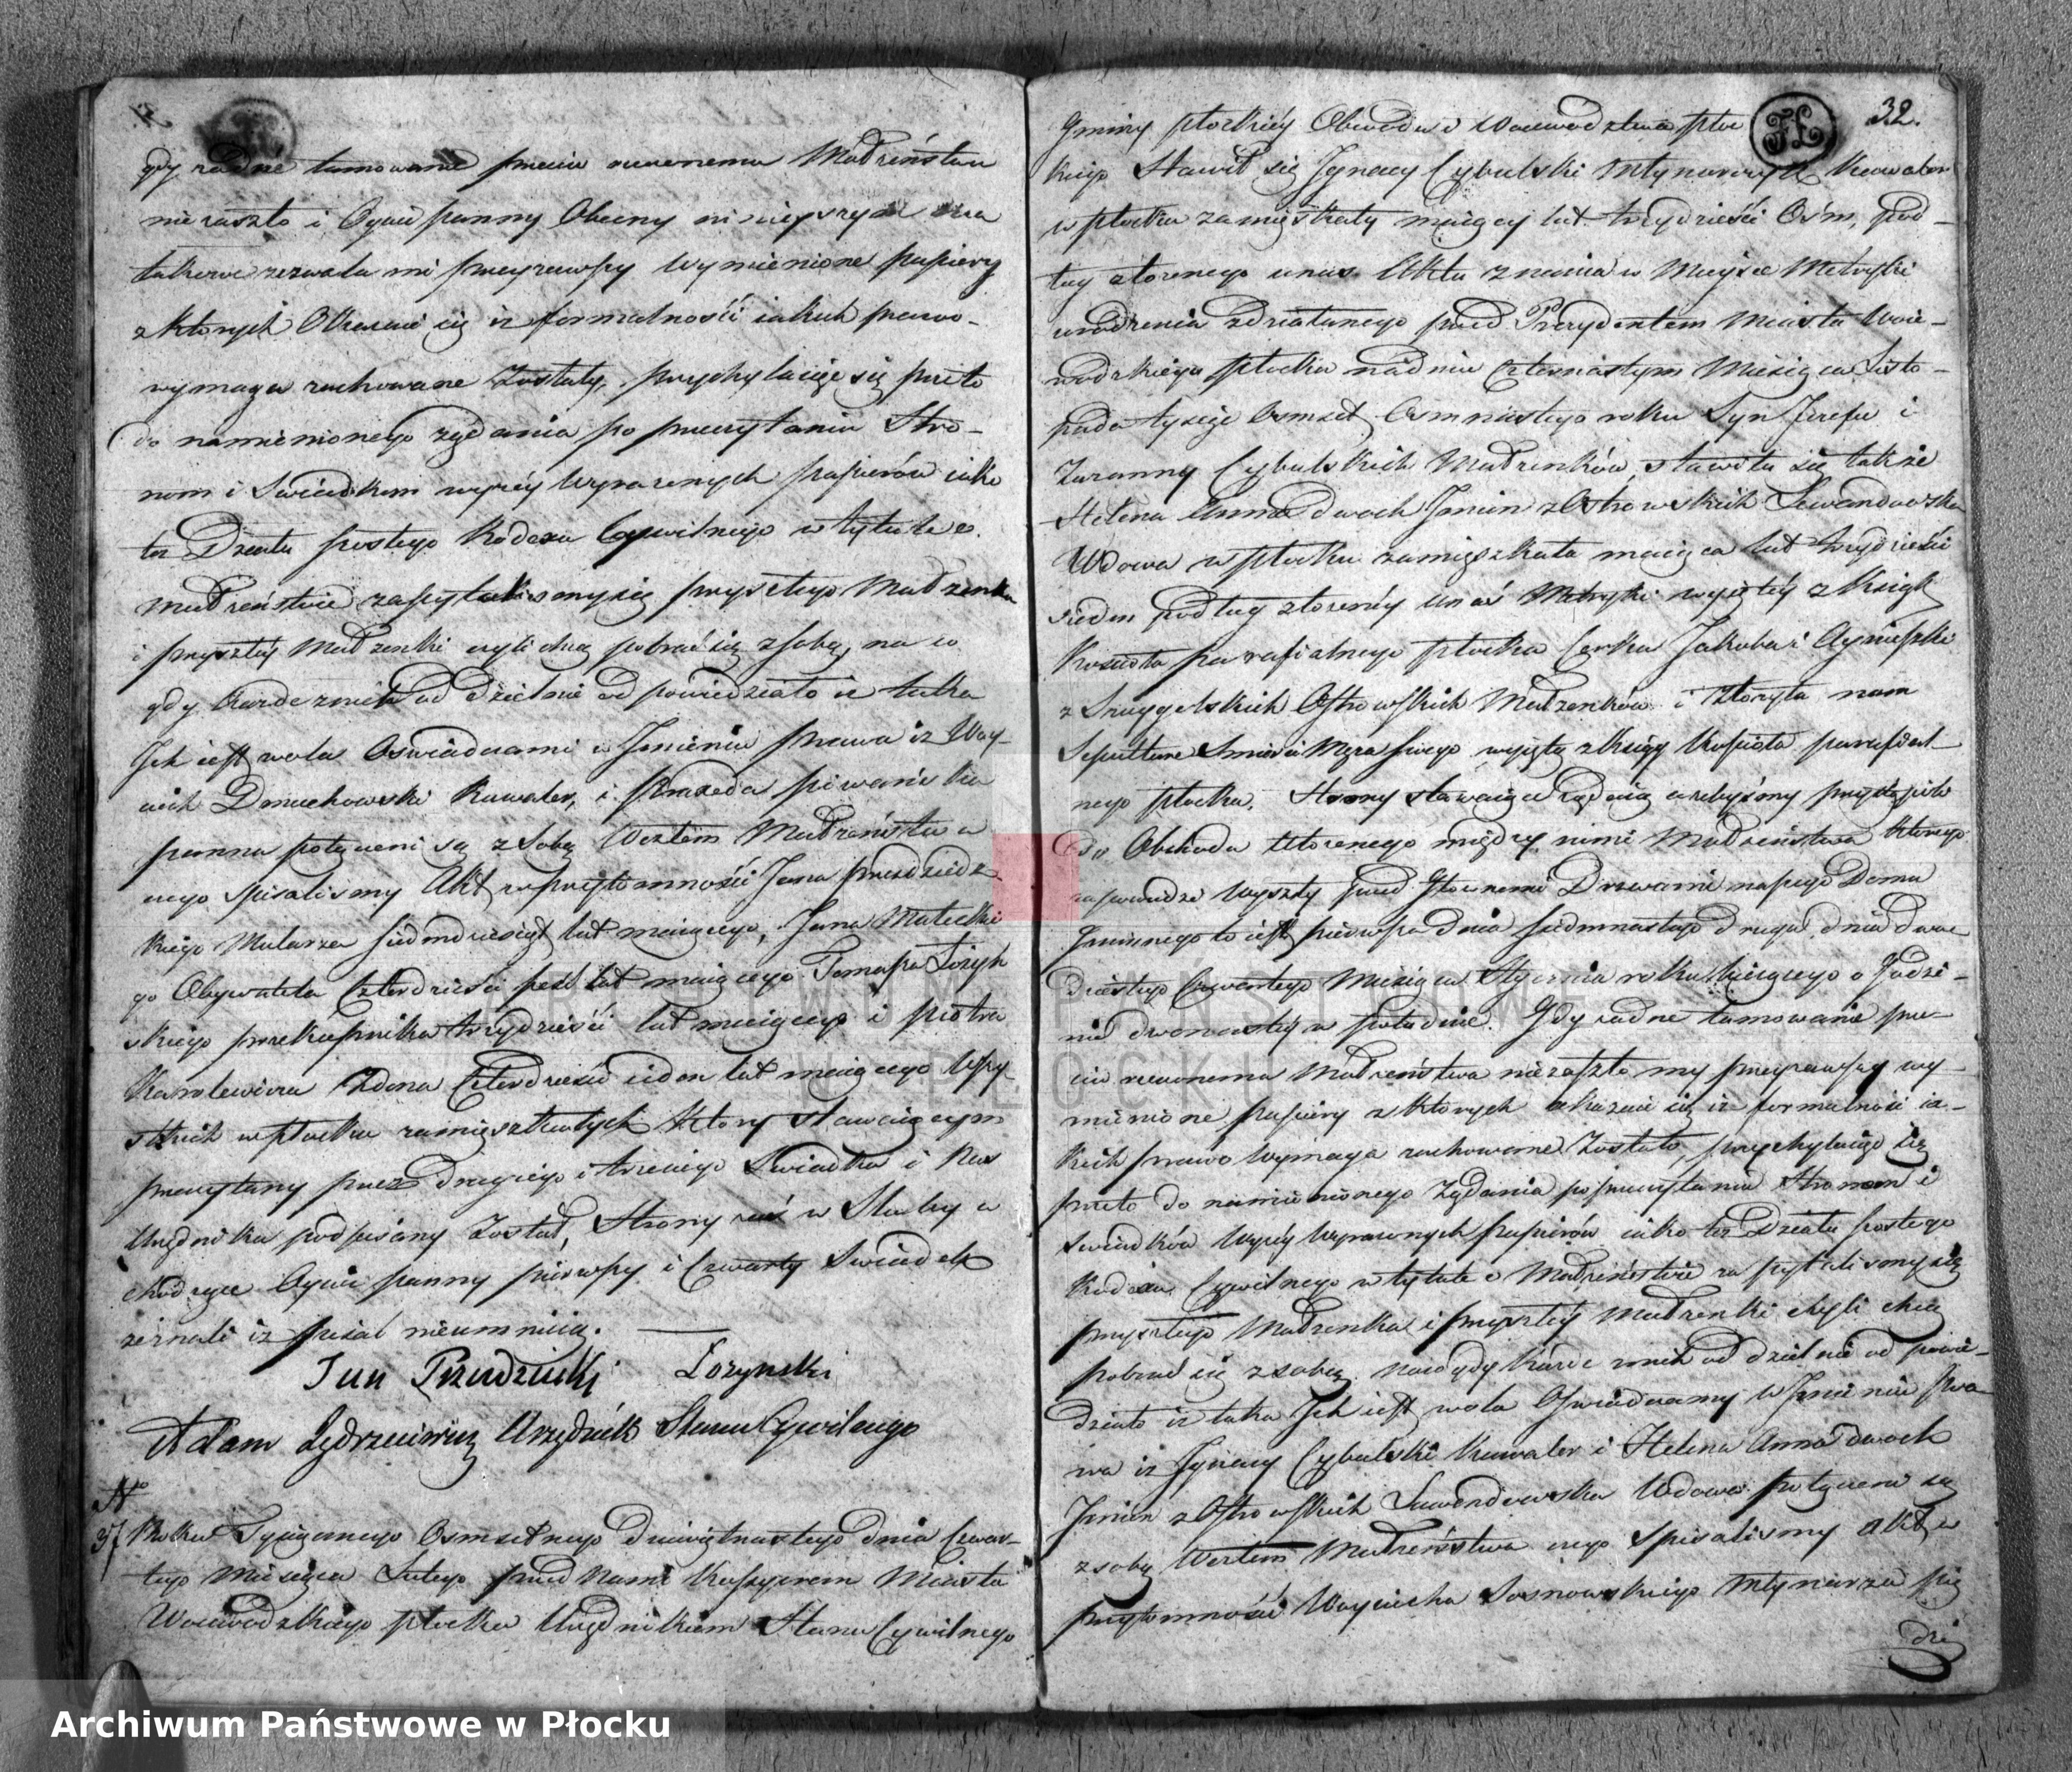 gdy żadne tamowanie przeciw rzeczonemu Małżeństwu
nie zaszło i Ojciec panny Obecny ninieyszym na
takowe zezwala my przeyrzawszy Wymienione papiery
z których Okazuie się iż formalności iakich prawo
wymaga zachowane Zostały, przychylaiąc się przeto
do namienionego żądania po przeczytaniu Stro-
nom i Swiadkom wyżey Wyrażonych papierów iako
też Działu szóstego Kodexu Cywilnego w tytule o
małżeństwie zapytaliśmy się przyszłego Małżonka
i przyszłéy Małżonki czyli chcą pobrać się z sobą, na co
gdy każde z nich od dzielnie od powiedziało iż taka
Jch iest wola Oswiadczamy w Jmieniu prawa iż Woy-
ciech Dmuchowski Kawaler, i
panna połączeni są z sobą Węzłem Małżeństwa
czego spisaliśmy Akt w przytomności Jana Przedziedz
kiego Mularza siedmdziesiąt lat maiącego, Jana Małeckie
go Obywatela Czterdzieści sześć lat maiącego Tomasza Łożyń
skiego przekupnika trzydzieści lat maiącego i Piotra
Karolewicza Zduna Czterdzieści siedm lat maiącego Wszy-
stkich w Płocku zamieszkałych Który stawaiącym
przeczytany przez drugiego i trzeciego Swiadka i nas
Urzędnika podpisany Został, Strony zaś w Służby
Ojciec panny pierwszy i Czwarty Swiadek
zeznali iż pisać nieumieią.
Jan Przedziecki Łozynski
Adam Jędrzeiewicz Urzędnik Stanu Cywilnego
N
37 Roku Tysiącznego Osmsetnego Dziewiętnastego dnia Czwar-
tego Miesiąca Lutego przed Nami Kassyerem Miasta
Woiewodzkiego Płocka Urzędnikiem Stanu Cywilnego
32.
Gminy Płockiéy Obwodu i Woiewodztwa Płoc
kiego Stawił się Jgnacy Cybulski Młynarczyk Kawaler
w Płocku zamięszkały maiący lat trzydzieści Ośm, pod-
ług złożonego u nas Aktu znania w Mieysce Metryki
urodzenia zdziałanego przed Prezydentem Miasta Woie-
wodzkiego Płocka na dniu Czternastym Miesiąca Listo-
pada tysiąc Osmset Osmnastego roku Syn Jozefa i
Zuzanny Cybulskich Małżonków, stawiła się także
Helena Anna dwoch Jmion z Ostrowskich Lewandowska
Wdowa w Płocku zamięszkała maiąca lat trzydzieści
siedm podług złożonéy u nas Metryki wyiętéy z Xiąg
Kościoła parafialnego Płocka Corka Jakoba i Agnieszki
z Ostrowskich Małżonków i Złożyła nam
Sepulture Smierci Męża swego wyiętą z Xięgi Kościoła parafial-
nego Płocka. Strony stawaiące żądaią ażebyśmy przystąpili
Do Obchodu Ułożonego między nimi Małżeństwa którego
zapowiedzi Wyszły przed Głownemi Drzwiami naszego Domu
Gminnego to iest pierwsza dnia siedmnastego druga dnia dwu
dziestego Czwartego Miesiąca Stycznia roku bieżącego o Godzi-
nie dwonastéy w południe. Gdy żadne tamowanie prze-
ciw rzeczonemu Małżeństwu niezaszło my przeyrzawszy wy-
mienione papiery z których okazuie się iż formalności ia-
kich prawo wymaga zachowane Zostały, przychylaiąc się
przeto do namienionego Żądania po przeczytaniu Stronom i
Swiadków Wyżey Wyrażonych papierów iako też Działu szóstego
Kodexu Cywilnego w tytule o Małżeństwie zapytaliśmy się
przyszłego Małżonka i przyszłéy Małżonki czyli chcą
pobrać się z sobą, na co gdy każde z nich od dzielnie od powie-
działo iż taka Jch iest wola Oswiadczamy W Jmieniu pra-
wa iż Jgnacy Cybulski Kawaler i Helena Anna dwoch
Jmion z Ostrowskich Lewandowska Wdowa połączeni są
z sobą Węzłem Małżeństwa czego Spisaliśmy Akt w
przytomności Woyciecha Sosnowskiego Młynarza pię
dzie
ARCHIWUM PAŃSTWOWE
W PŁOCKU
Archiwum Państwowe w Płocku